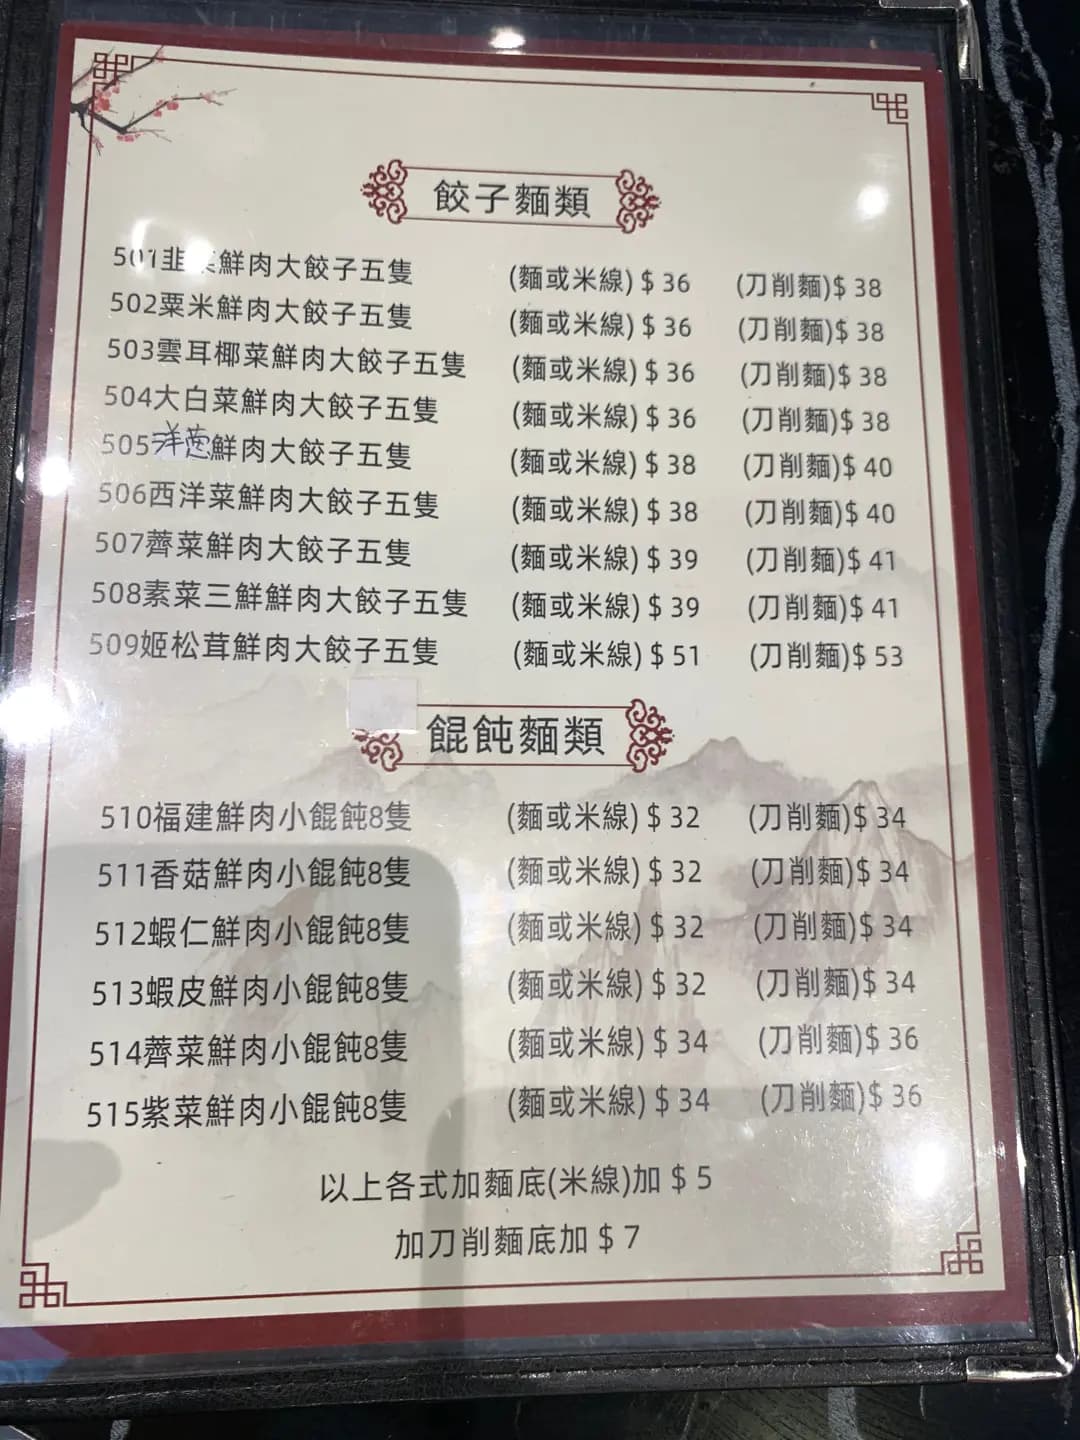 餃子麵類
501韭菜鮮肉大餃子五隻 (麵或米線)$36 (刀削麵)$38
502粟米鮮肉大餃子五隻 (麵或米線)$36 (刀削麵)$38
503雲耳椰菜鮮肉大餃子五隻 (麵或米線)$36 (刀削麵)$38
504大白菜鮮肉大餃子五隻 (麵或米線)$36 (刀削麵)$38
505洋蔥鮮肉大餃子五隻 (麵或米線)$38 (刀削麵)$40
506西洋菜鮮肉大餃子五隻 (麵或米線)$38 (刀削麵)$40
507薺菜鮮肉大餃子五隻 (麵或米線)$39 (刀削麵)$41
508素菜三鮮鮮肉大餃子五隻 (麵或米線)$39 (刀削麵)$41
509姬松茸鮮肉大餃子五隻 (麵或米線)$51 (刀削麵)$53
餛飩麵類
510福建鮮肉小餛飩8隻 (麵或米線)$32 (刀削麵)$34
511香菇鮮肉小餛飩8隻 (麵或米線)$32 (刀削麵)$34
512蝦仁鮮肉小餛飩8隻 (麵或米線)$32 (刀削麵)$34
513蝦皮鮮肉小餛飩8隻 (麵或米線)$32 (刀削麵)$34
514薺菜鮮肉小餛飩8隻 (麵或米線)$34 (刀削麵)$36
515紫菜鮮肉小餛飩8隻 (麵或米線)$34 (刀削麵)$36
以上各式加麵底(米線)加$5
加刀削麵底加$7